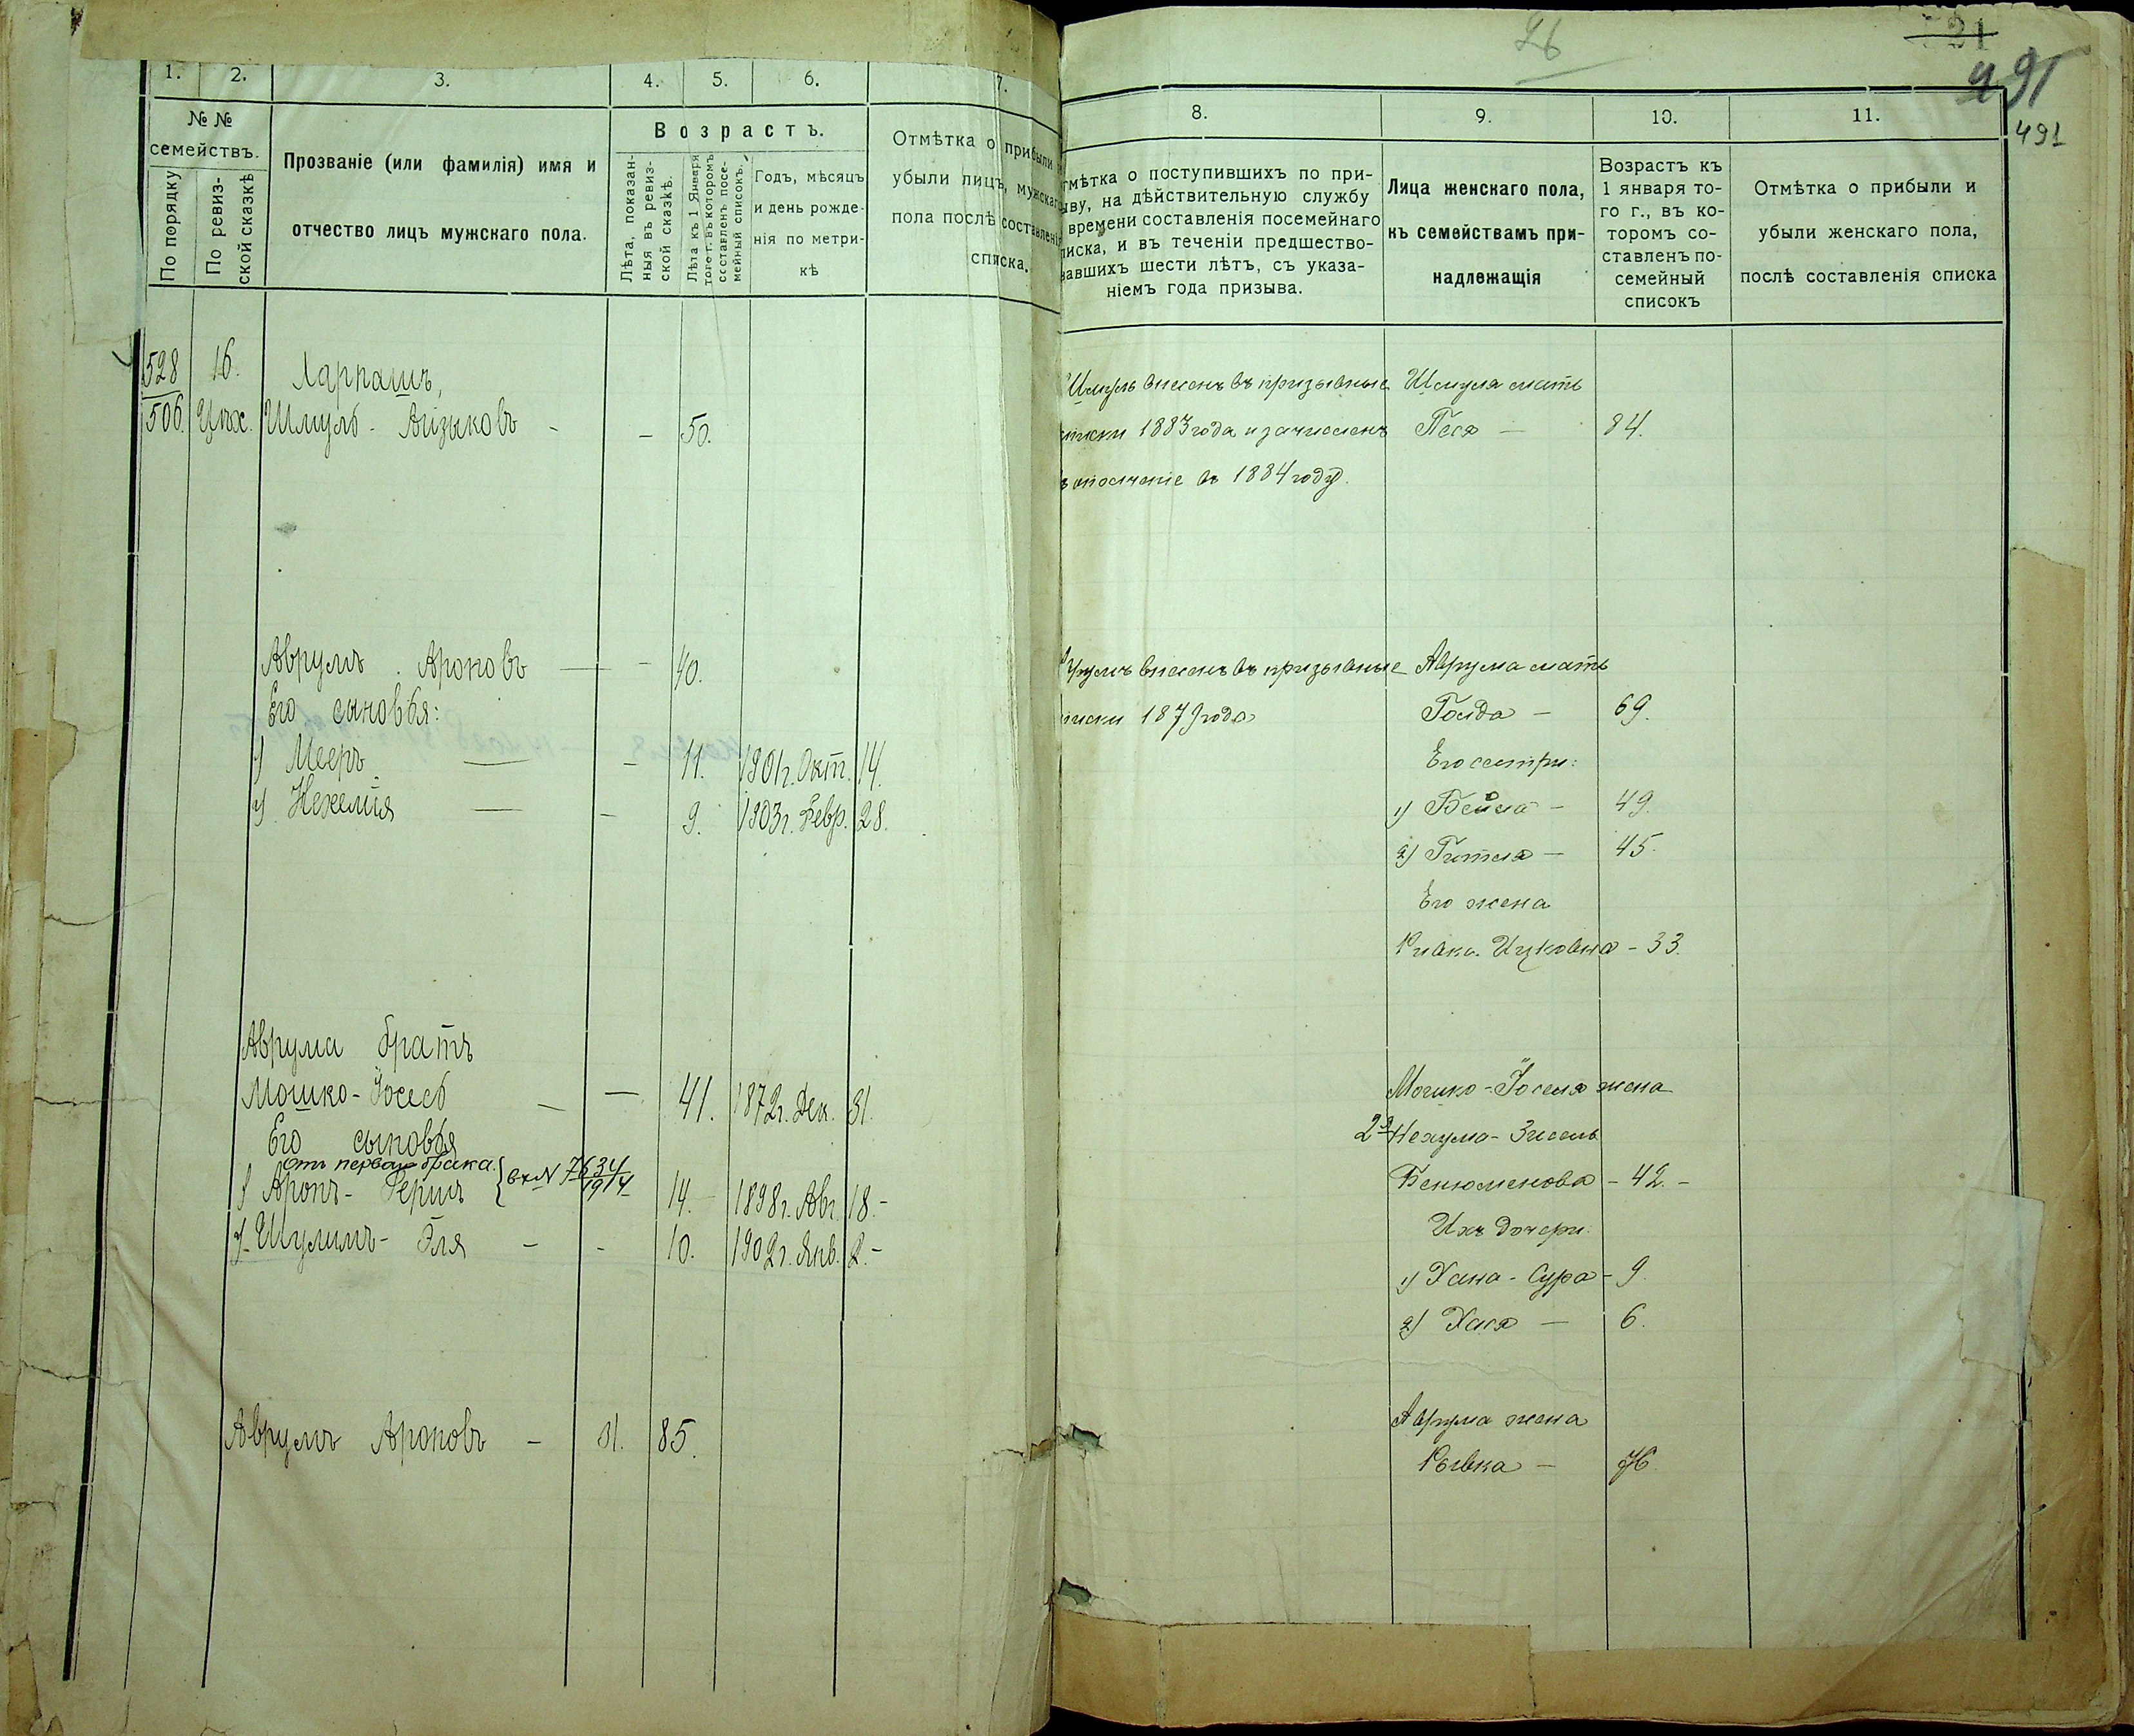 1.
2.
3.
4.
5.
6.
7.
№ №
семействъ.
По порядку
По ревиз-
ской сказкѣ
Прозваніе (или фамилія) имя и
отчество лицъ мужскаго пола.
Возрастъ.
Лѣта, показан-
ныя въ ревиз-
ской сказкѣ.
Лѣта къ 1 Января
того г. въ которомъ
составленъ посе-
мейный списокъ.
Годъ, мѣсяцъ
и день рожде-
нія по метри-
кѣ
Отмѣтка о прибыли и
убыли лицъ, мужскаго
пола послѣ составленія
списка.
528 16. Харпашъ,
506. Цех. Шмуль Айзыковъ - - 50.
Аврумъ Ароновъ — - 40.
Его сыновья:
1) Мееръ — - 11. 1901г. Окт. 14.
2) Нехемія — - 9. 1903г. Февр. 28.
Аврума братъ
Мошко-Іосель — — 41. 1872г. Дек. 31.
Его сыновья
отъ перваго брака.
1) Аронъ-Гершъ { вх № 7634/1914 14. 1898г. Авг. 18.-
2) Шулимъ-Эля - - 10. 1902г. Янв. 2.-
Аврумъ Ароновъ - 31. 85.
26
21
491
491
8.
9.
10.
11.
тмѣтка о поступившихъ по при-
ыву, на дѣйствительную службу
времени составленія посемейнаго
писка, и въ теченіи предшество-
вавшихъ шести лѣтъ, съ указа-
ніемъ года призыва.
Лица женскаго пола,
къ семействамъ при-
надлежащія
Возрастъ къ
1 января то-
го г., въ ко-
торомъ со-
ставленъ по-
семейный
списокъ
Отмѣтка о прибыли и
убыли женскаго пола,
послѣ составленія списка
Шмуль внесенъ въ призывные Шмуля мать
списки 1883 года и зачисленъ Песя — 84.
въ ополченіе въ 1884 году.
Аврумъ внесенъ въ призывные Аврума мать
списки 1879 года Голда — 69.
Его сестры:
1) Бейла — 49.
2) Гитля — 45.
Его жена
Ривка Ицковна - 33.
Мошко-Іоселя жена
2я Нехума-Зисель
Бенюменова - 42.-
Ихъ дочери:
1) Хана-Сура - 9.
2) Хася — 6.
Аврума жена
Рывка — 76